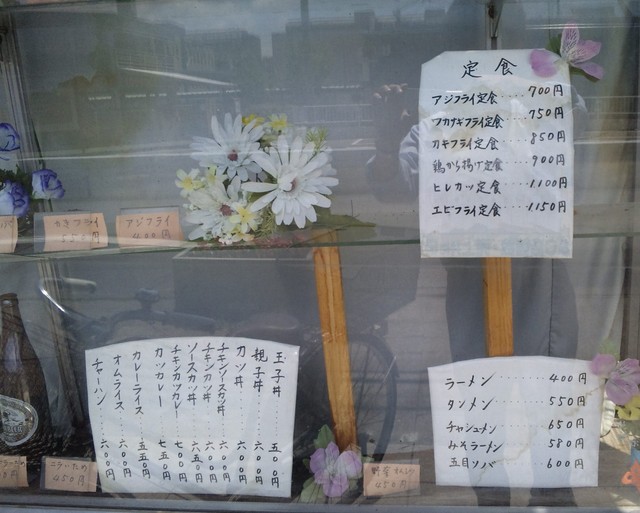 定食
アジフライ定食‥‥700円
ワカサギフライ定食‥‥750円
カキフライ定食‥‥850円
鶏から揚げ定食‥‥900円
ヒレカツ定食‥‥1,100円
エビフライ定食‥‥1,150円
カキフライ
550円
アジフライ
400円
玉子丼 五〇〇円
親子丼 六〇〇円
カツ丼 六〇〇円
チキンソースカツ丼 六〇〇円
チキンカツ丼 六〇〇円
ソースカツ丼 六五〇円
チキンカツカレー 七〇〇円
カツカレー 七五〇円
カレーライス 五五〇円
オムライス 六〇〇円
チャーハン 六〇〇円
ラーメン‥‥400円
タンメン‥‥550円
チャシュメン‥‥650円
みそラーメン‥‥580円
五目ソバ‥‥600円
ニラいため
450円
野菜いため
450円